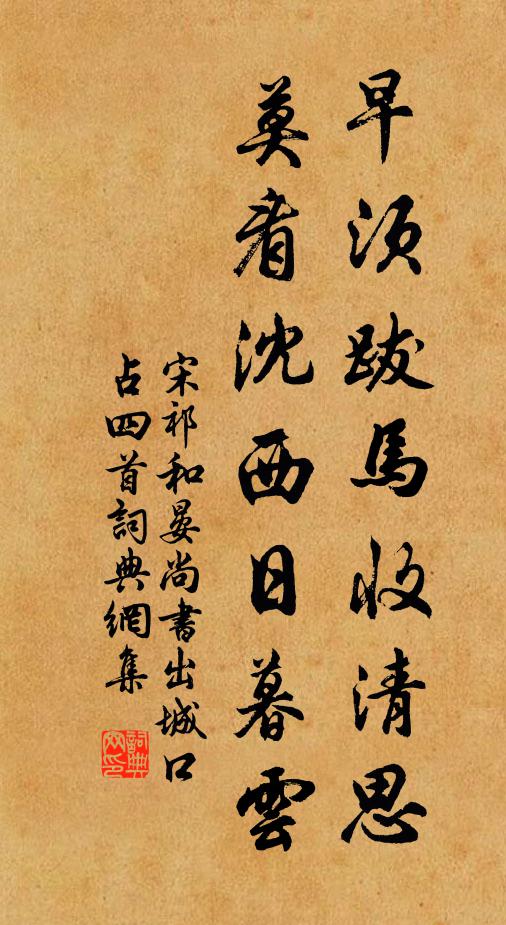 早須跋馬收清思
莫看沈西日暮雲
宋祁和晏尚書出城口
占四首詞典網集
詞典
網印